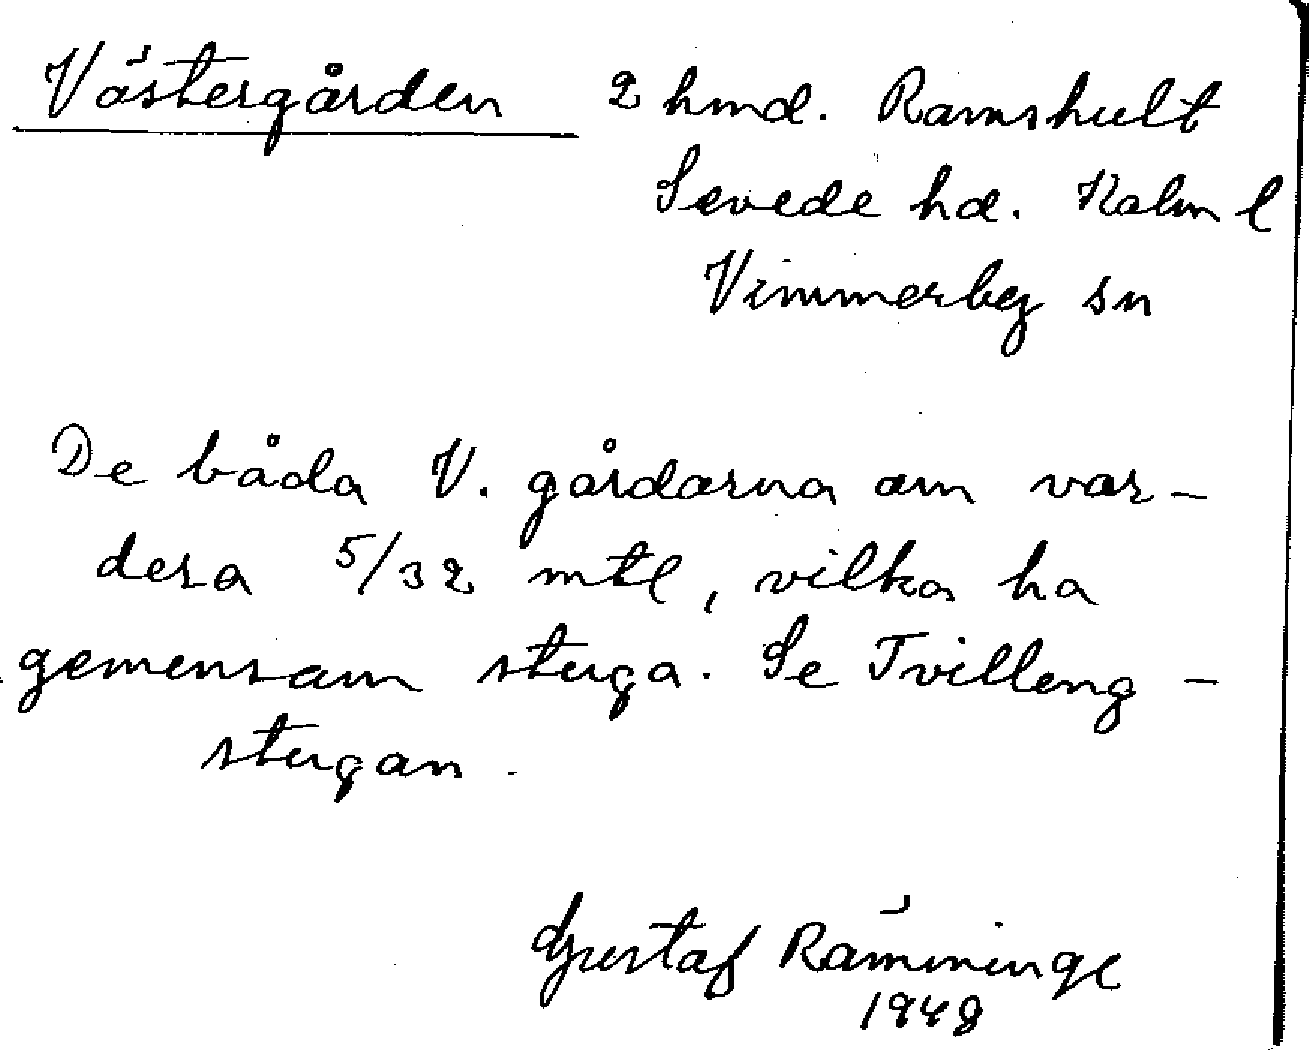 Västergården 2 hmd. Ramshult
Sevede hd. Kalm l
Vimmerby sn
De båda V. gårdarna om var-
dera 5/32 mtl, vilka ha
gemensam stuga. Se Tvilling-
stugan.
Gustaf Ramminge
1948